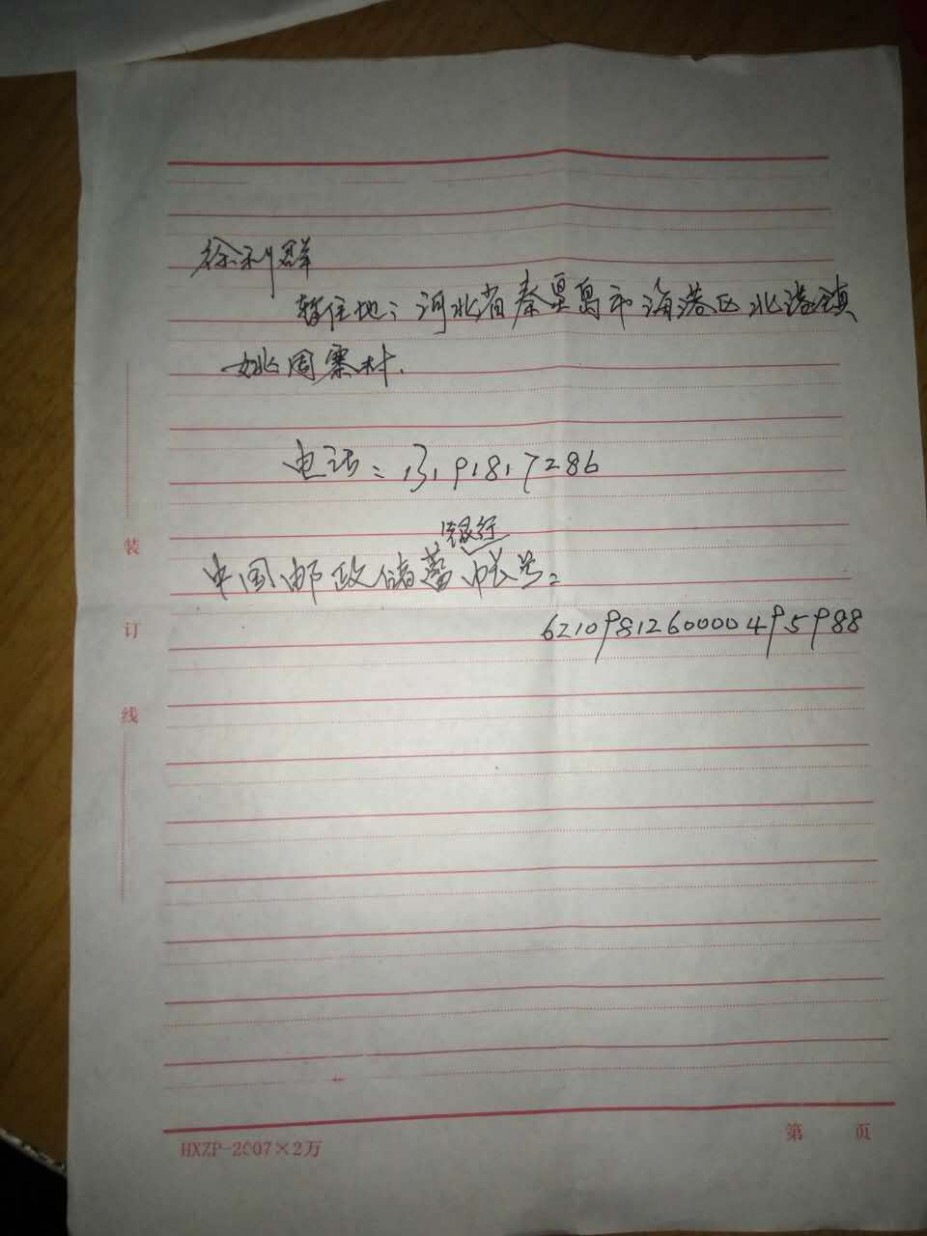 徐利群
暂住地：河北省秦皇岛市海港区北港镇
姚周寨村.
电话：13191817286
中国邮政储蓄银行帐号：
6210981260000495988
装
订
线
HXZP-2007×2万
第 页